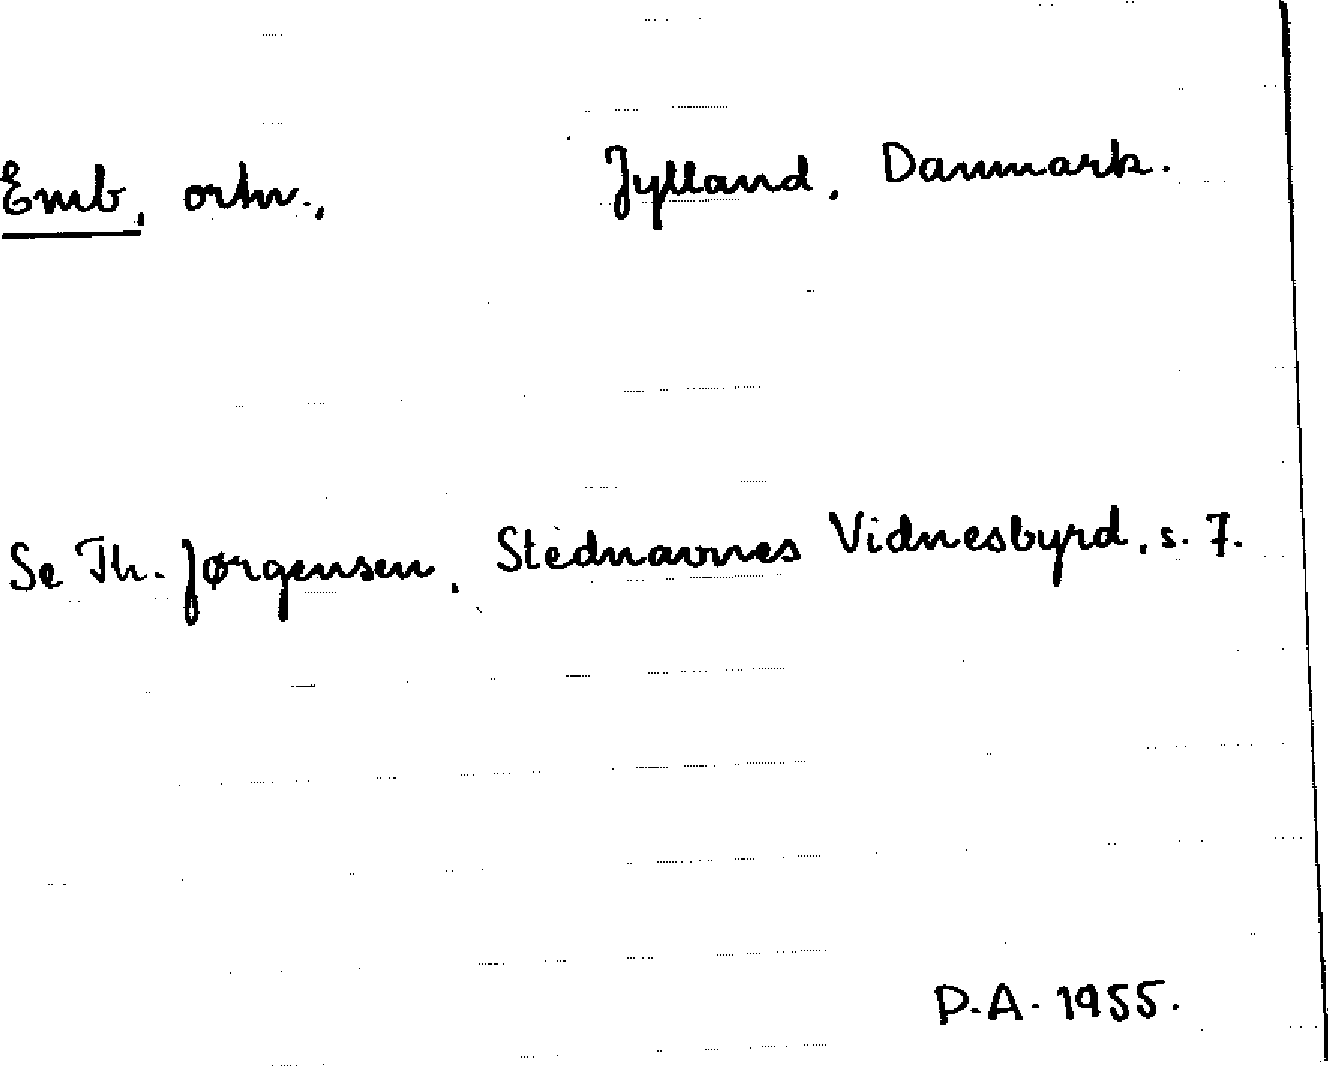 Emb, ortn., Jylland, Danmark.
Se Th. Jørgensen, Stednavnes Vidnesbyrd, s. 7.
P.A. 1955.